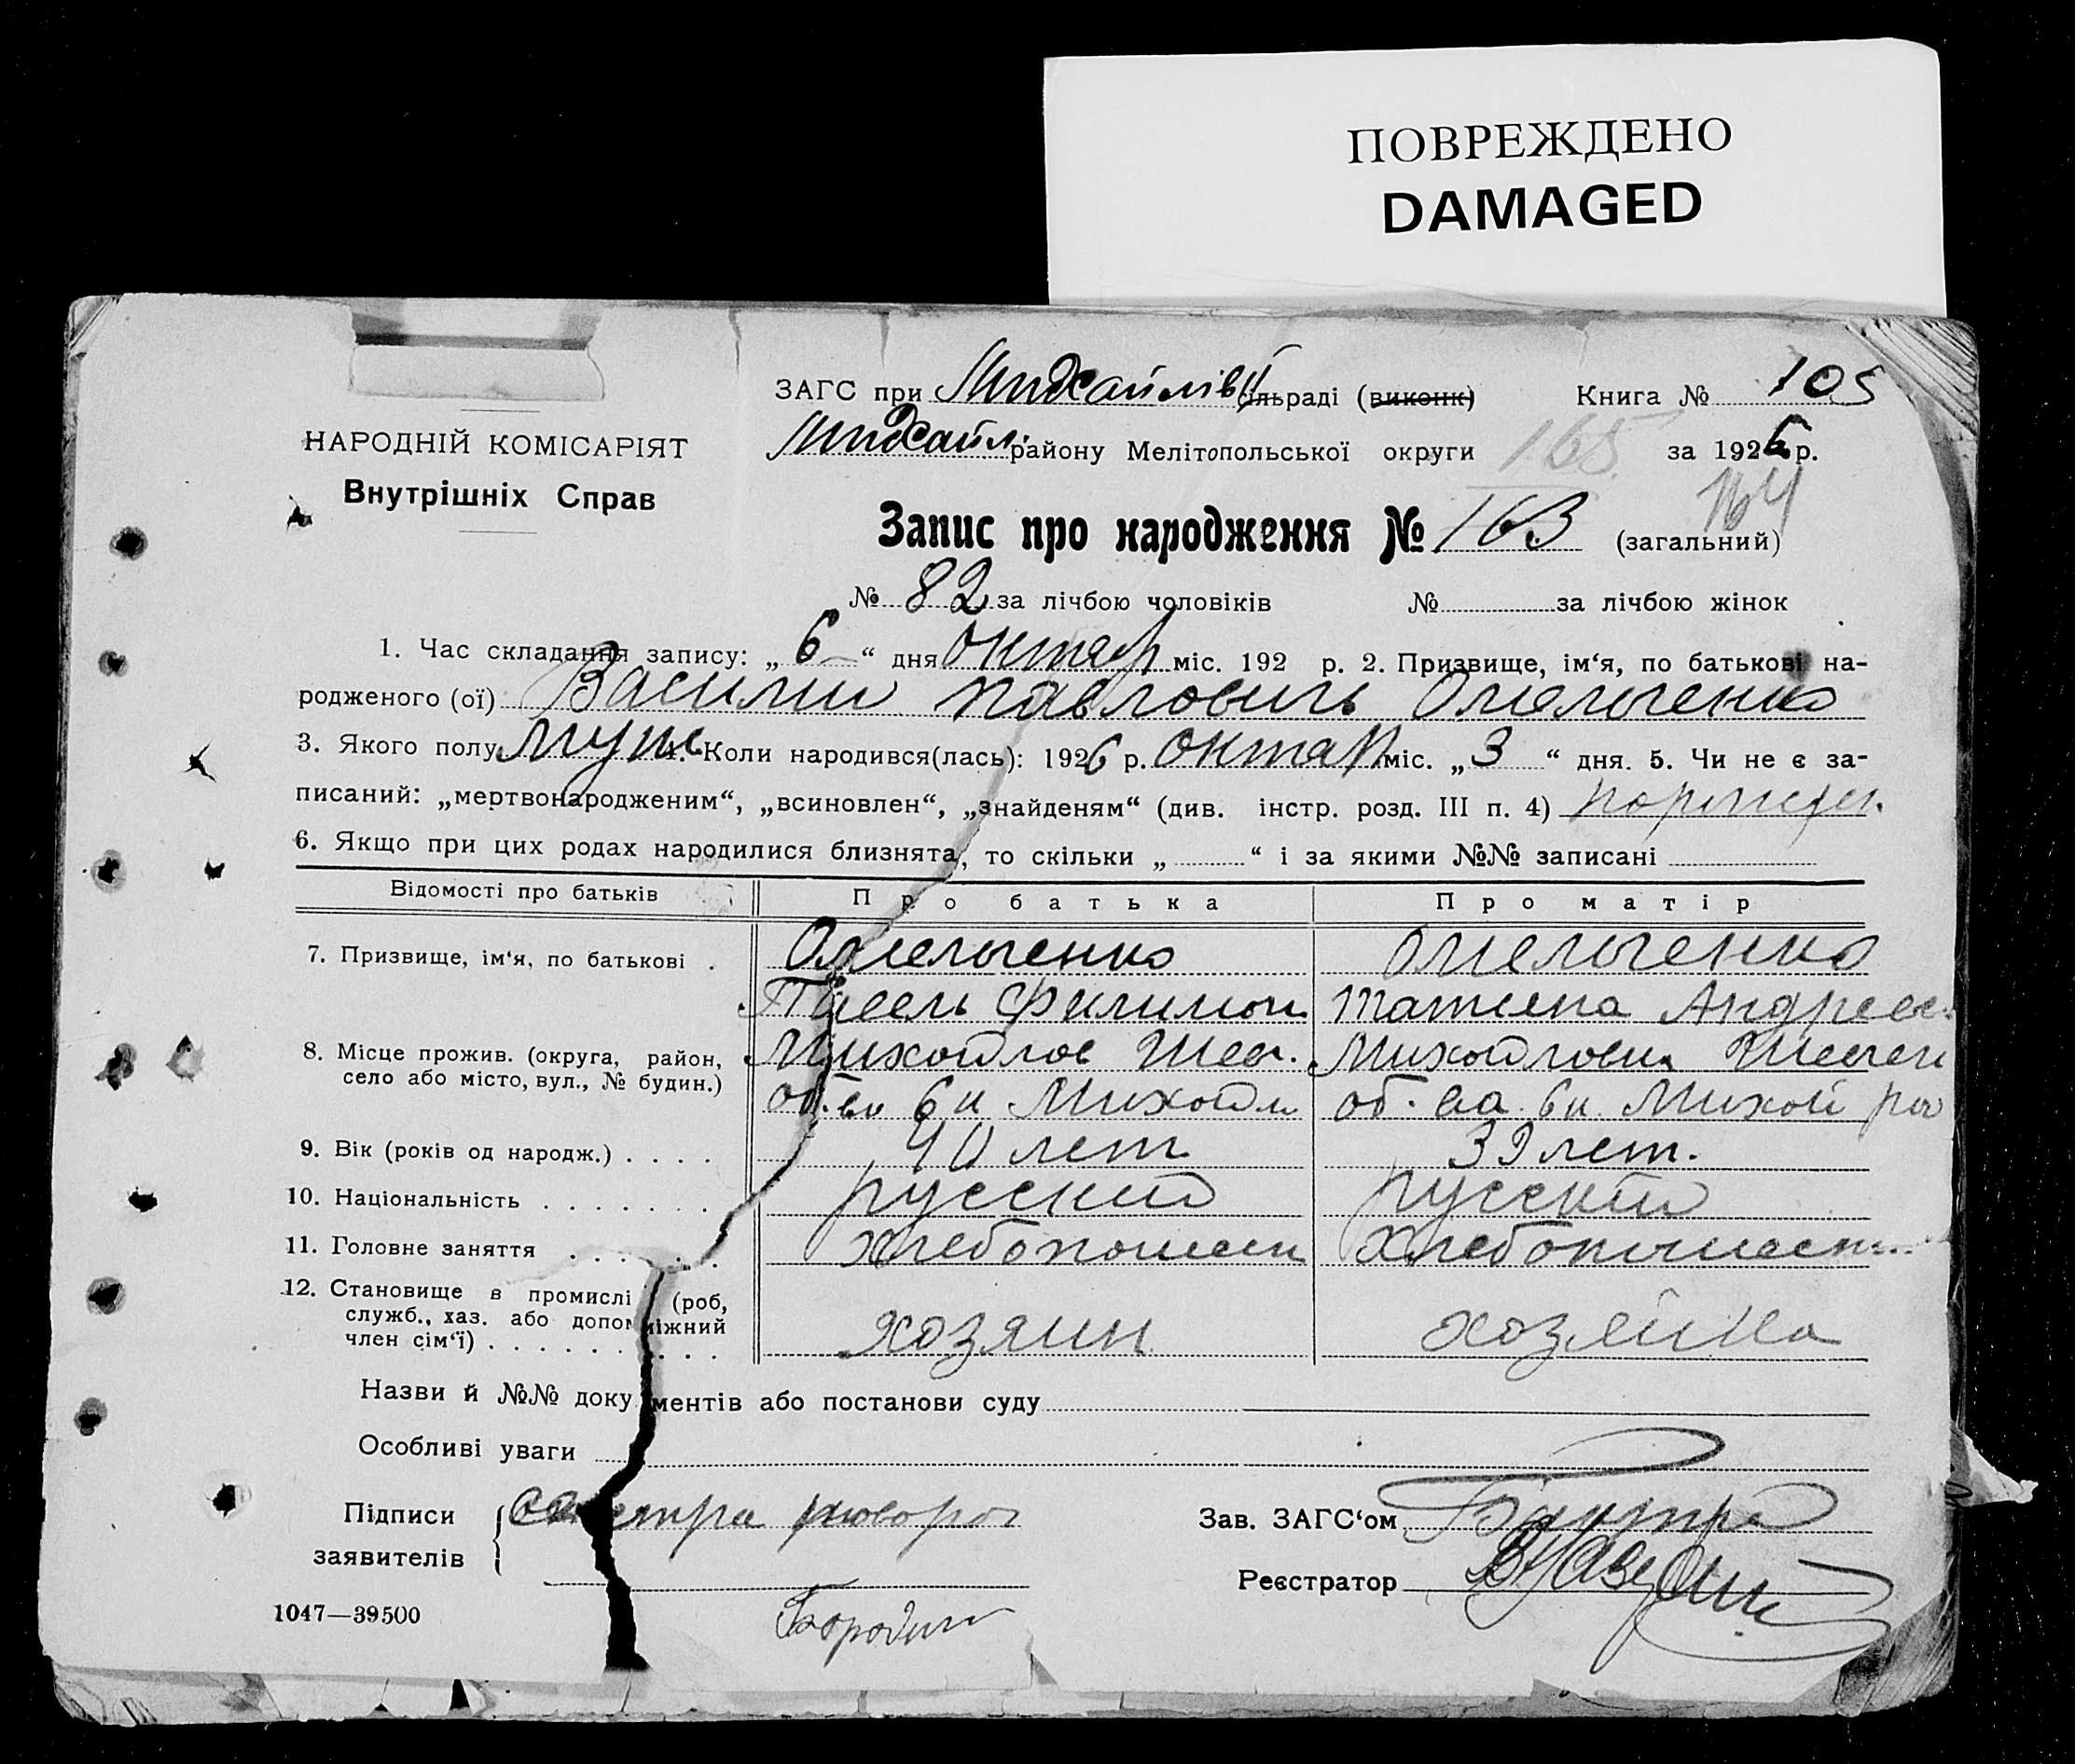 ПОВРЕЖДЕНО
DAMAGED
ЗАГС при Михайлівй сільраді (виконк) Книга № 105
НАРОДНІЙ КОМІСАРІЯТ
Внутрішніх Справ
Михайл. району Мелітопольської округи 165 за 1926 р.
164
Запис про народження № 163 (загальний)
№ 82 за лічбою чоловіків № за лічбою жінок
1. Час складання запису: „ 6 “ дня октяр міс. 192 р. 2. Призвище, ім‘я, по батькові на-
родженого (ої) Василий Павловичь Омельченко
3. Якого полу муж 4. Коли народився(лась): 1926 р. октяр міс. „ 3 “ дня. 5. Чи не є за-
писаний: „мертвонародженим“, „всиновлен“, „знайденям“ (див. інстр. розд. III п. 4)
6. Якщо при цих родах народилися близнята, то скільки „ “ і за якими №№ записані
Відомості про батьків Про батька Про матір
7. Призвище, ім‘я, по батькові . Омельченко Омельченко
Павель Филимон Татьяна Андреев.
8. Місце прожив. (округа, район, село або місто, вул., № будин.)
9. Вік (років од народж.) . . . . 40 лет 39 лет.
10. Національність . . . . . . . русский русский
11. Головне заняття . . . . . . хлебопашест хлебопашест
12. Становище в промислі (роб, служб., хаз. або допоміжний член сім‘ї) . . . . . . . . . хозяин хозяйка
Назви й №№ документів або постанови суду
Особливі уваги
Підписи заявителів
Зав. ЗАГС‘ом
Реєстратор
1047—39500
Бородин